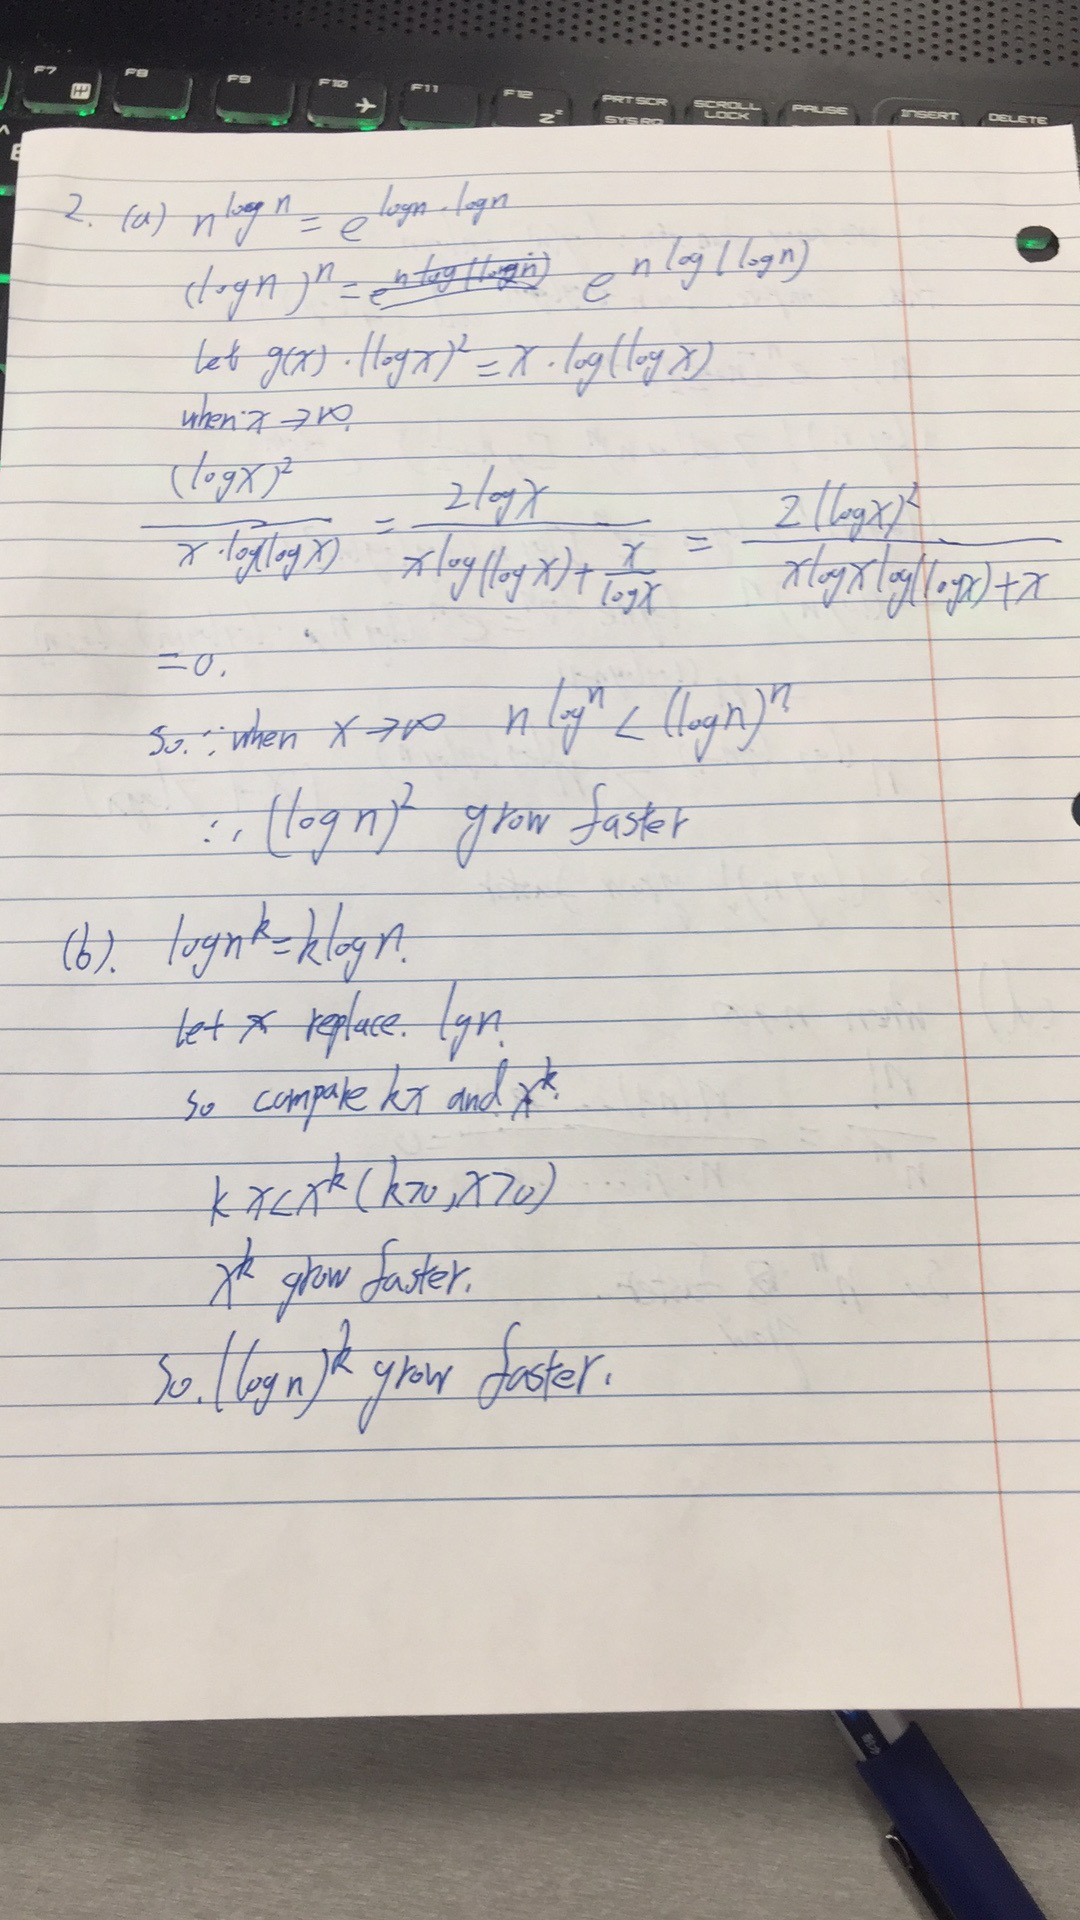 F7 F8 F9 F10 F11 F12 PRT SCR SCROLL PAUSE INSERT DELETE
Z^z SYS RQ LOCK
2. (a) n^{log n} = e^{log n · log n}
(log n)^n = e^{n log(log n)} e^{n log(log n)}
let g(x) · (log x)^2 = x · log(log x)
when x → ∞.
(log x)^2 / (x · log(log x)) = 2 log x / (x log(log x) + x / log x) = 2 (log x)^2 / (x log x log(log x) + x)
= 0.
So. ∵ when x → ∞ n^{log n} < (log n)^n
∴ (log n)^2 grow faster
(b). log n^k = k log n.
Let x replace. lg n.
so compare kx and x^k.
kx < x^k (k>0, x>0)
x^k grow faster.
So. (log n)^k grow faster.